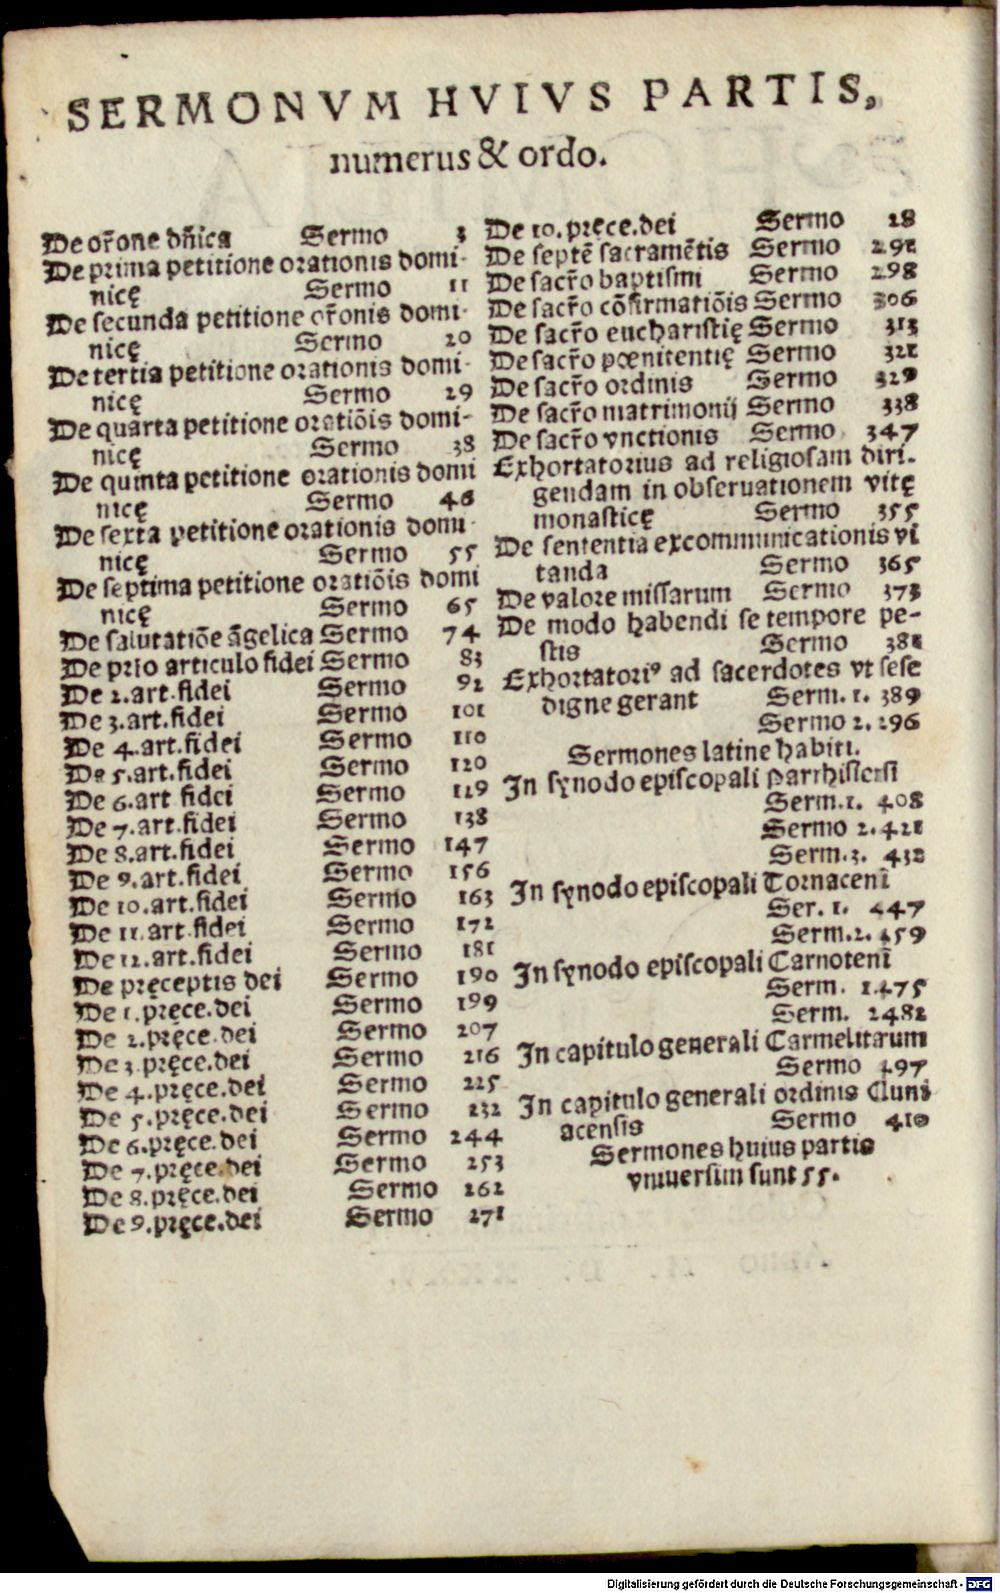 SERMONVM HVIVS PARTIS,
numerus & ordo.
De or̃one dñica Sermo 3
De prima petitione orationis domi-
nicę Sermo 11
De secunda petitione or̃onis domi-
nicę Sermo 20
De tertia petitione orationis domi-
nicę Sermo 29
De quarta petitione oratiõis domi-
nicę Sermo 38
De quinta petitione orationis domi
nicę Sermo 46
De sexta petitione orationis domi-
nicę Sermo 55
De septima petitione oratiõis domi
nicę Sermo 65
De salutatiõe ãgelica Sermo 74
De prio articulo fidei Sermo 83
De 2.art.fidei Sermo 92
De 3.art.fidei Sermo 101
De 4.art.fidei Sermo 110
De 5.art.fidei Sermo 120
De 6.art fidei Sermo 129
De 7.art.fidei Sermo 138
De 8.art.fidei Sermo 147
De 9.art.fidei Sermo 156
De 10.art.fidei Sermo 163
De 11.art.fidei Sermo 172
De 12.art.fidei Sermo 181
De pręceptis dei Sermo 190
De 1.pręce.dei Sermo 199
De 2.pręce.dei Sermo 207
De 3.pręce.dei Sermo 216
De 4.pręce.dei Sermo 225
De 5.pręce.dei Sermo 232
De 6.pręce.dei Sermo 244
De 7.pręce.dei Sermo 253
De 8.pręce.dei Sermo 262
De 9.pręce.dei Sermo 271
De 10.pręce.dei Sermo 28
De septẽ sacramẽtis Sermo 291
De sacr̃o baptismi Sermo 298
De sacr̃o cõfirmatiõis Sermo 306
De sacr̃o eucharistię Sermo 313
De sacr̃o pœnitentię Sermo 321
De sacr̃o ordinis Sermo 329
De sacr̃o matrimonij Sermo 338
De sacr̃o vnctionis Sermo 347
Exhortatorius ad religiosam diri-
gendam in obseruationem vitę
monasticę Sermo 355
De sententia excommunicationis vi
tanda Sermo 365
De valore missarum Sermo 373
De modo habendi se tempore pe-
stis Sermo 381
Exhortatoriꝰ ad sacerdotes vt sese
digne gerant Serm. 1. 389
Sermo 2. 296
Sermones latine habiti.
In synodo episcopali parrhisiensi
Serm.1. 408
Sermo 2. 421
Serm.3. 432
In synodo episcopali Tornaceñi
Ser. 1. 447
Serm.2. 459
In synodo episcopali Carnoteñi
Serm. 1475
Serm. 2482
In capitulo generali Carmelitarum
Sermo 497
In capitulo generali ordinis Cluni
acensis Sermo 410
Sermones huius partis
vniuersim sunt 55.
Digitalisierung gefördert durch die Deutsche Forschungsgemeinschaft - DFG